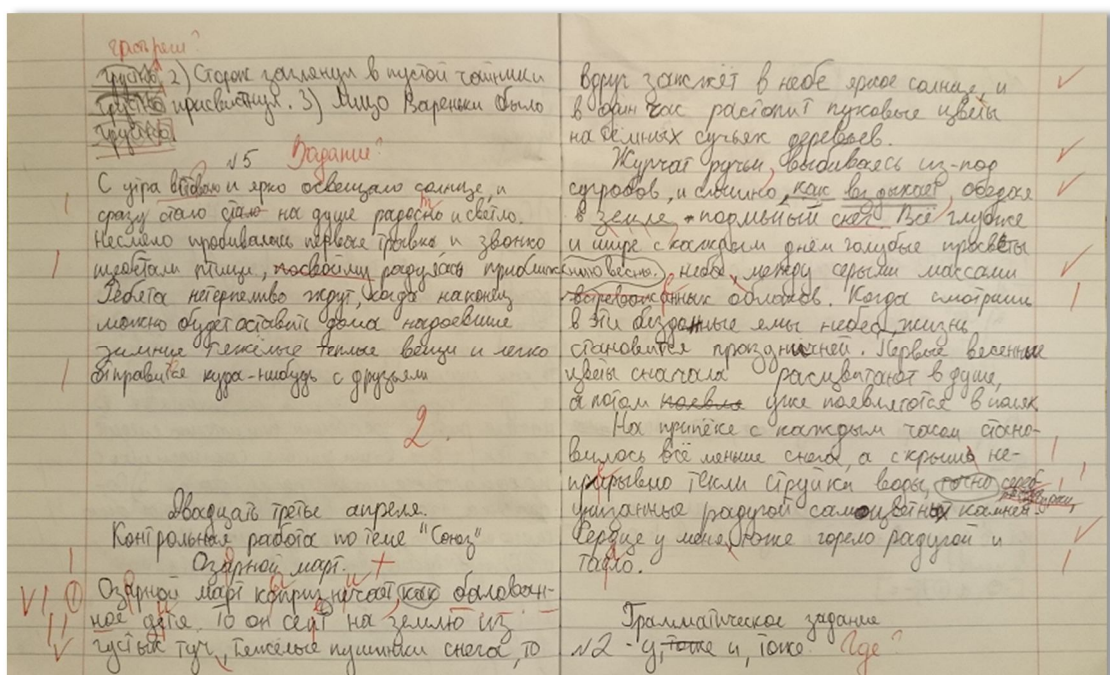 2) Сторож заглянул в пустой чайники
присвистнул. 3) Лицо Вареньки было
№5 Задание?
С утра и ярко освещало солнце, и
сразу стало стало на душе радостно и светло.
Несмело пробивалась первая травка и звонко
щебетали птицы, радуясь приближению весны.
Ребята нетерпеливо ждут, когда наконец
можно будет оставить дома надоевшие
зимние тяжёлые теплые вещи и легко
отправится куда-нибудь с друзьями
2.
Двадцать третье апреля.
Контрольная работа по теме "Союз"
Озарной март.
Озарной март капризнечает, как балован-
ное дитя. То он сеит на землю из
густых туч, тяжёлые пушинки снега, то
вдруг зажжёт в небе яркое солнце, и
в один час растопит пуховые цветы
на тёмных сучьях деревьев.
Журчат ручьи, выбиваясь из-под
сугробов, и слышно, как вздыхает, оседая
к земле, подмытый снег. Всё глубже
и шире с каждым днём голубые просветы
неба, между серыми массами
облаков. Когда смотришь
в эти бездонные ямы неба, жизнь
становится праздничней. Первые весенние
цветы сначала расцветают в душе,
а потом уже появляются в полях
На припёке с каждым часом стано-
вилось всё меньше снега, а с крыши не-
прирывно текли струйки воды, точно
унизанные радугой самоцветных камней.
Сердце у меня, тоже горело радугой и
таяло.
Грамматическое задание
№2 - у, тоже и, тоже Где?